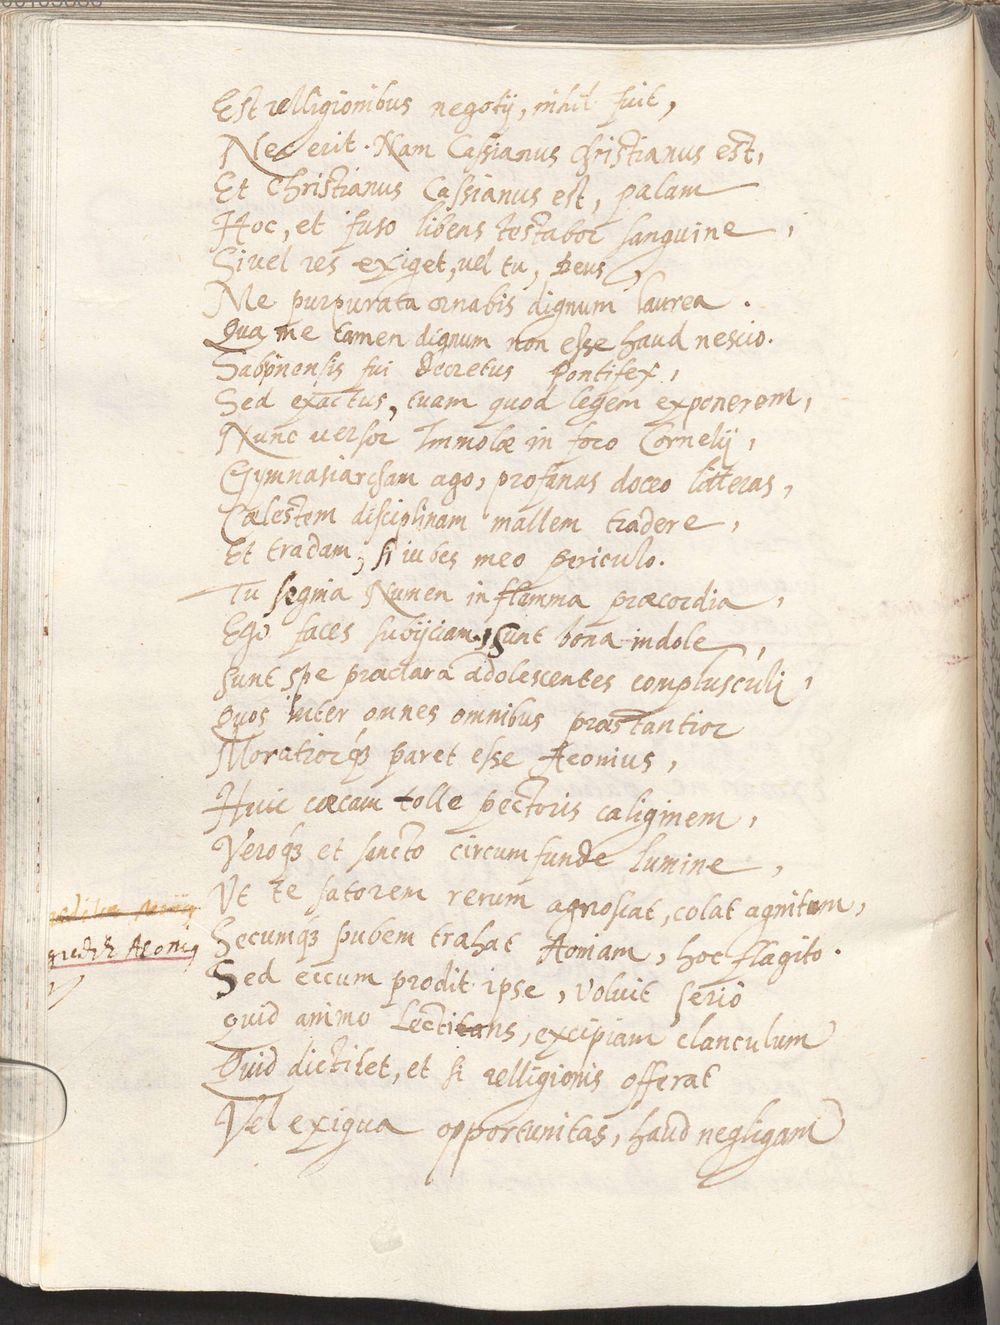 Est relligionibus negotij, nihil fuit,
Nec erit. Nam Cassianus christianus est,
Et christianus Cassianus est, palam
Hoc, et fuso libens testabor sanguine,
Si vel res exiget, vel tu, Deus,
Me purpurata ornabis dignum laurea.
Qua me tamen dignum non esse haud nescio.
Sabinensis fui decretus Pontifex,
Sed exactus, tuam quod legem exponerem,
Nunc versor Immolæ in foro Cornelij,
Gymnasiarcham ago, profanas doceo litteras,
Cœlestem disciplinam mallem tradere,
Et tradam, si iubes meo periculo.
Tu segnia Numen inflamma præcordia,
Ego faces subijciam, Sunt bona indole,
Sunt spe præclara adolescentes complusculi,
Quos inter omnes omnibus præstantior
Moratiorq3 paret esse Aeonius,
Huic cæcam tolle pectoris caliginem,
Veroq3 et sancto circumfunde lumine,
Ut te satorem rerum agnoscat, colat agnitum,
Secumq3 pubem trahat Aoniam, hoc flagito.
Sed eccum prodit ipse, voluit serio
quid animo Lectitans, excipiam clanculum
Quid dictitet, et si relligionis offerat
Vel exigua opportunitas, haud negligam